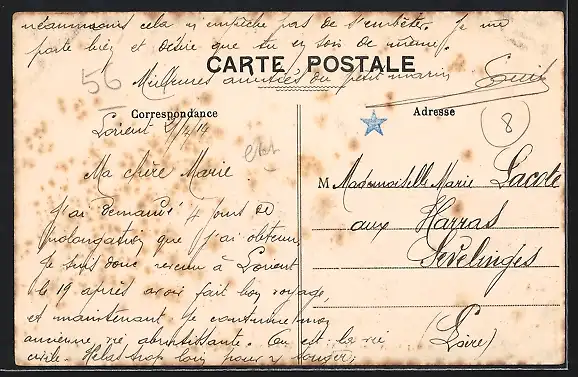 néanmoins cela n'empêche pas de s'embêter. Je me
porte bien et désire que tu en sois de même.
CARTE POSTALE
Meilleures amitiés du petit marin
Louis
56
Correspondance
Adresse
8
Lorient /4/14
Ma chère Marie
J'ai demandé 4 jours de
prolongation que j'ai obtenu,
Je suis donc revenu à Lorient
le 19 après avoir fait bon voyage
et maintenant je continue mon
ancienne vie, abrutissante. Ou est la vie
civile. Hélas trop loin pour y songer,
M Mademoiselle Marie Lacote
aux Harras
Sevelinges
(Loire)